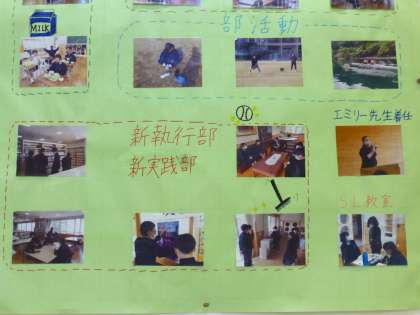 MILK
部活動
新執行部
新実践部
エミリー先生着任
SL教室